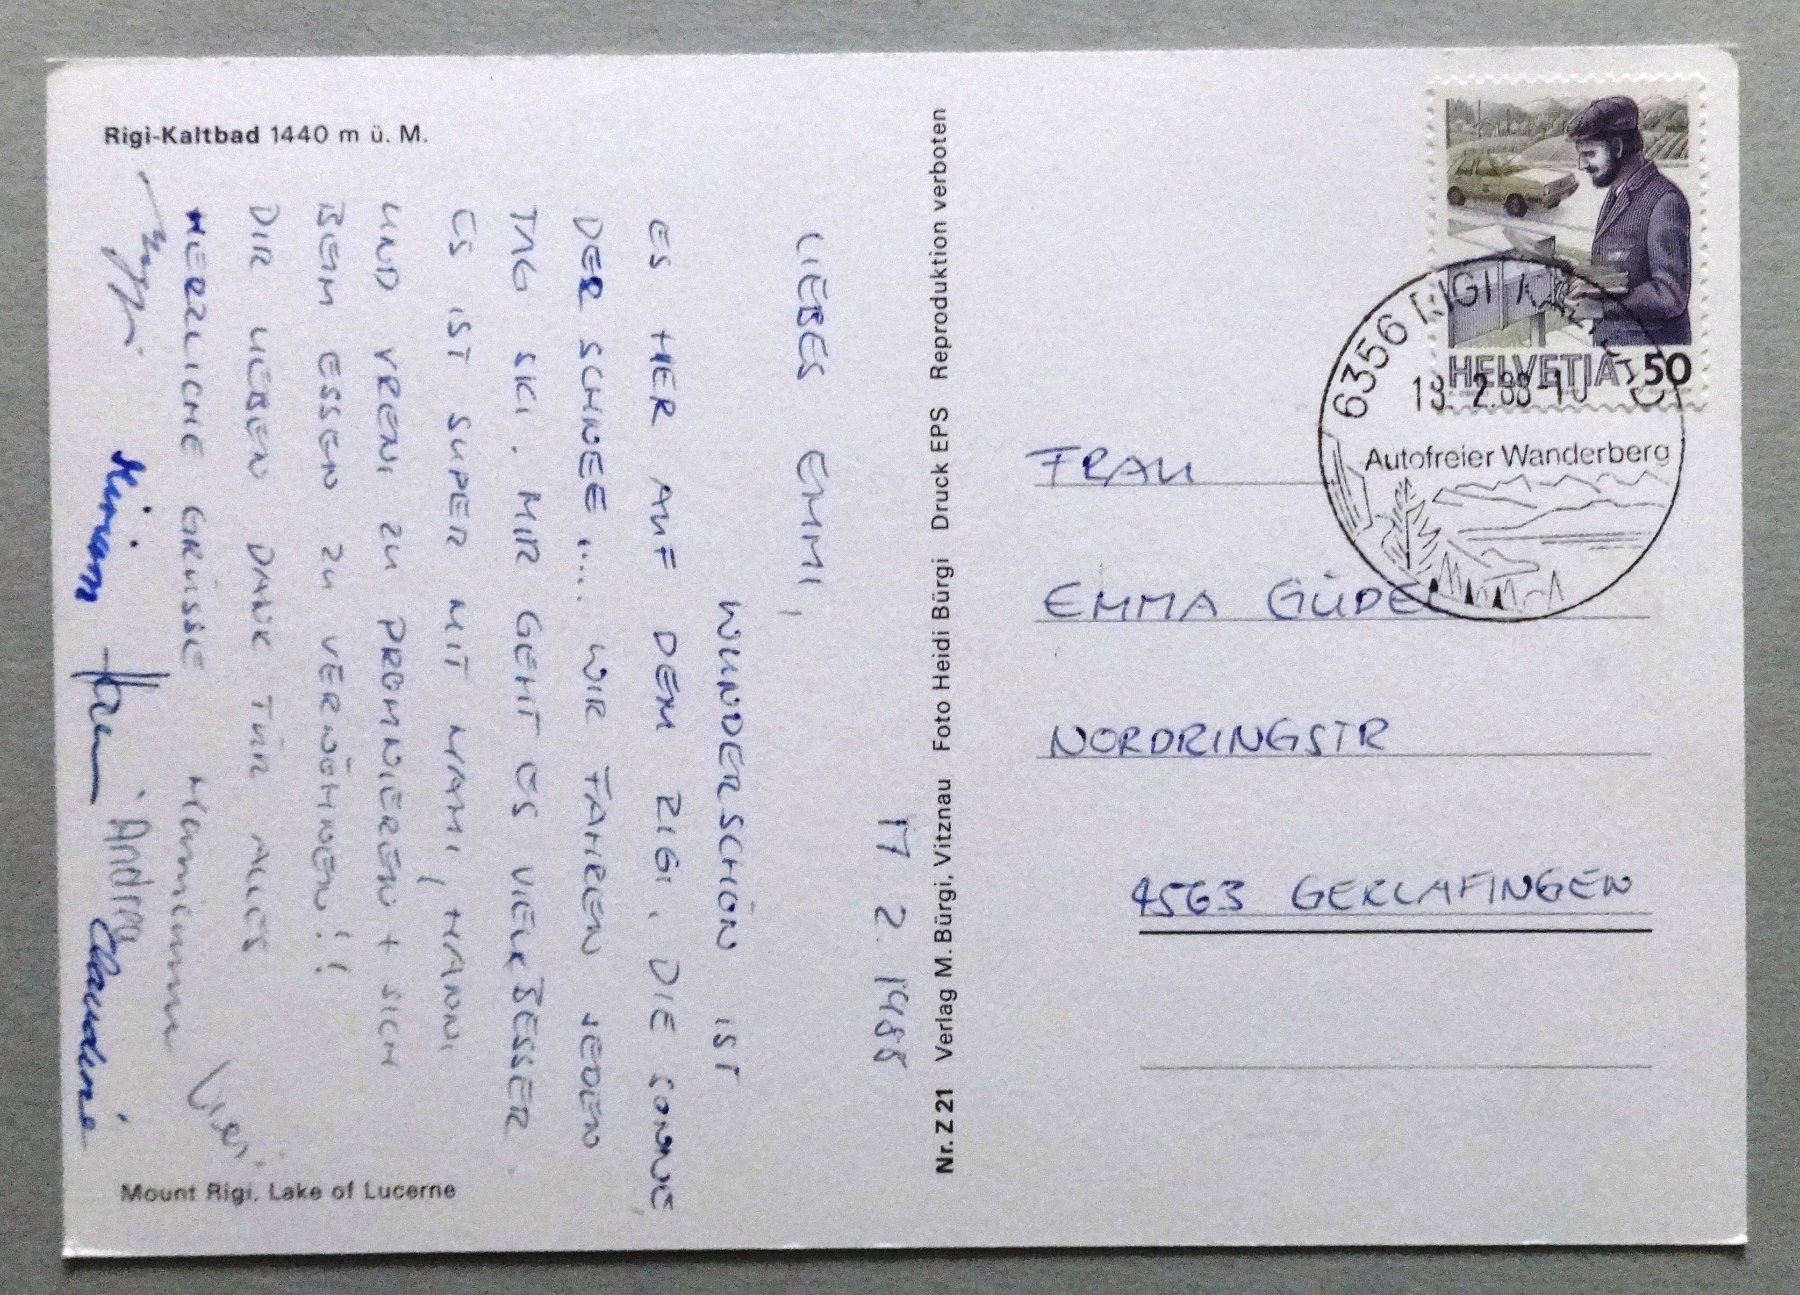 Rigi-Kaltbad 1440 m ü. M.
17 2. 1988
LIEBES EMMI,
WUNDERSCHÖN IST
ES HIER AUF DEM RIGI, DIE SONNE,
DER SCHNEE.... WIR FAHREN JEDEN
TAG SKI. MIR GEHT ES VIEL BESSER.
ES IST SUPER MIT MAMI, HANNI
UND VRENI ZU PROMNIEREN + SICH
BEIM ESSEN ZU VERWÖHNEN!!
DIR LIEBEN DANK FÜR ALLES
HERZLICHE GRÜSSE
Miriam
Andrea
Claudine
Mount Rigi, Lake of Lucerne
Nr. Z 21 Verlag M. Bürgi, Vitznau Foto Heidi Bürgi Druck EPS Reproduktion verboten
HELVETIA 50
6356 RIGI KALTBAD
18. 2.88-10
Autofreier Wanderberg
FRAU
EMMA GÜDEL
NORDRINGSTR
4563 GERLAFINGEN